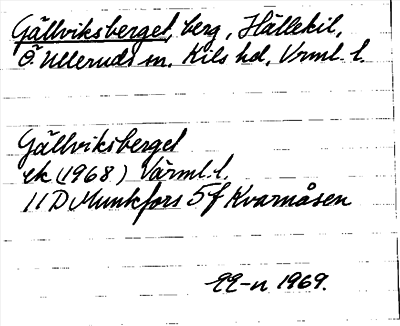 Gällviksberget, berg, Hällekil,
Ö. Ulleruds sn. Kils hd, Vrml. l.
Gällviksberget
ek (1968) Värml. l.
11D Munkfors 5f Kvarnåsen
1969.